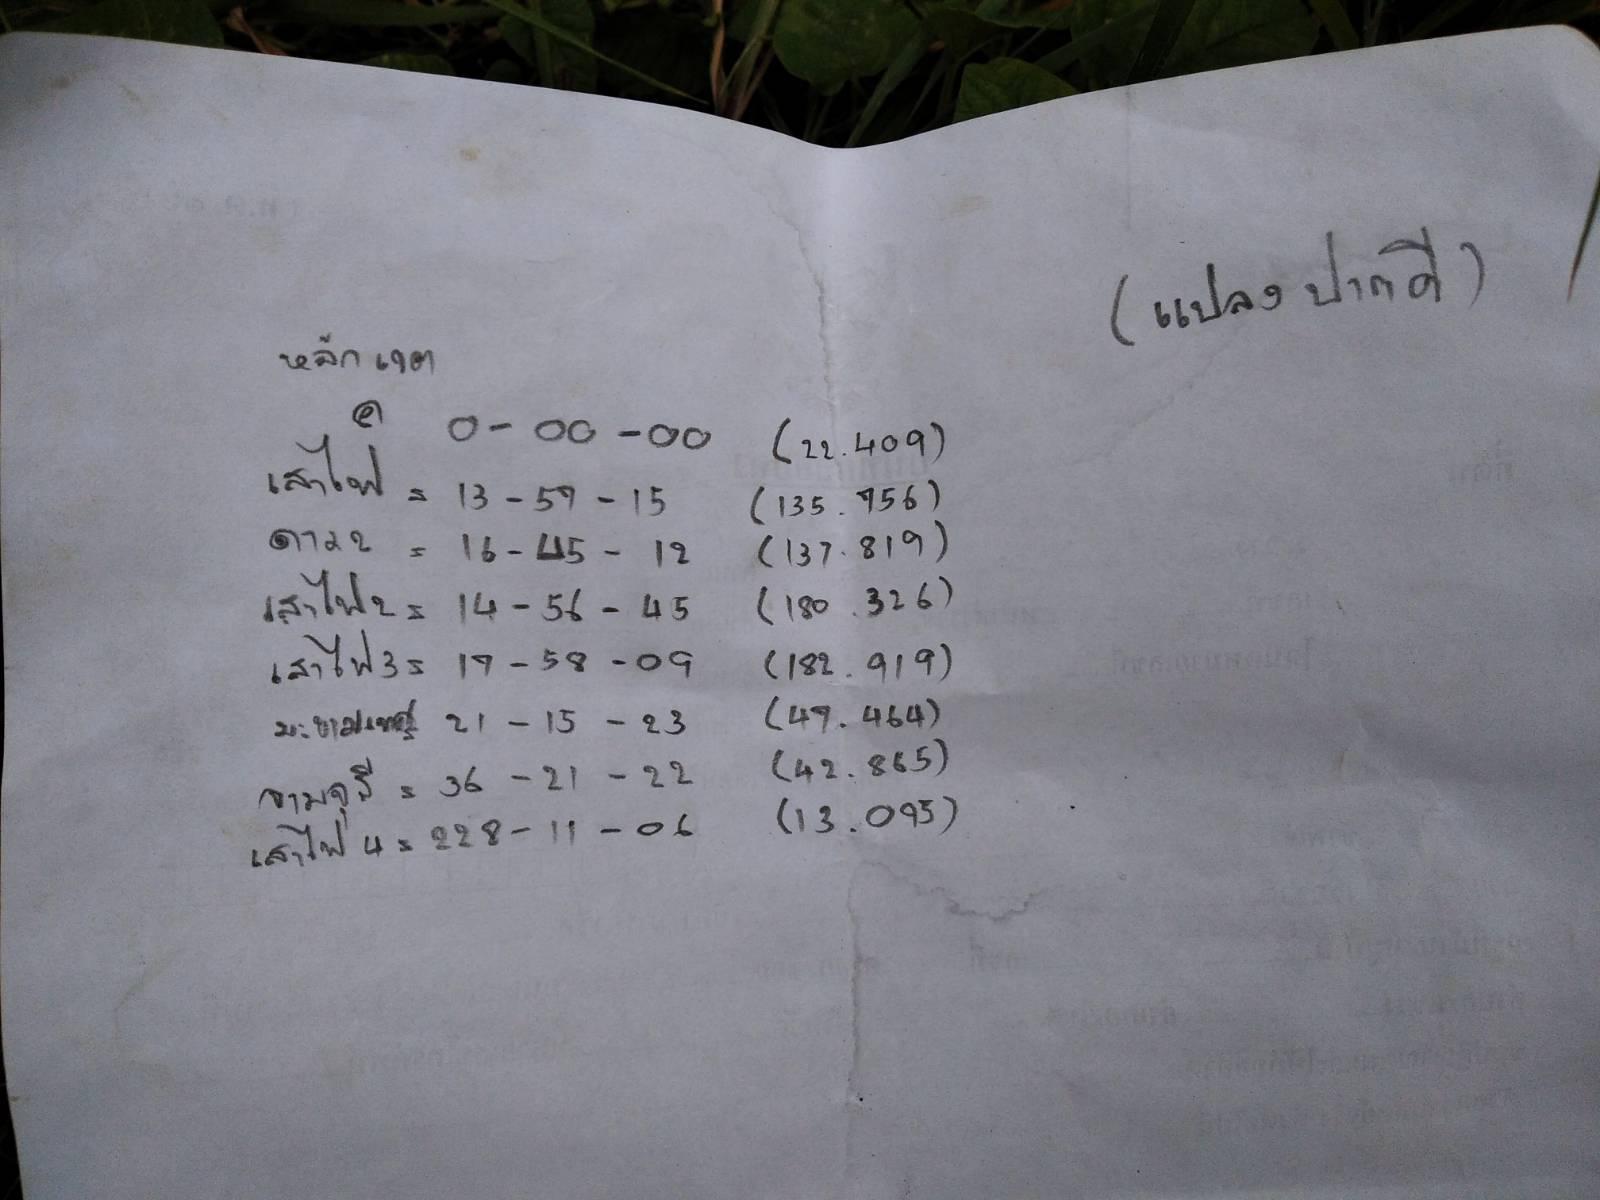 (แปลง ปากดี)
หลักเขต
ด 0-00-00 (22.409)
เสาไฟ = 13-59-15 (135.956)
ดาม2 = 16-45-12 (137.819)
เสาไฟ2 = 14-56-45 (180.326)
เสาไฟ3 = 19-58-09 (182.919)
มะขามเทศ 21-15-23 (49.464)
จามจุรี = 36-21-22 (42.865)
เสาไฟ 4 = 228-11-06 (13.095)